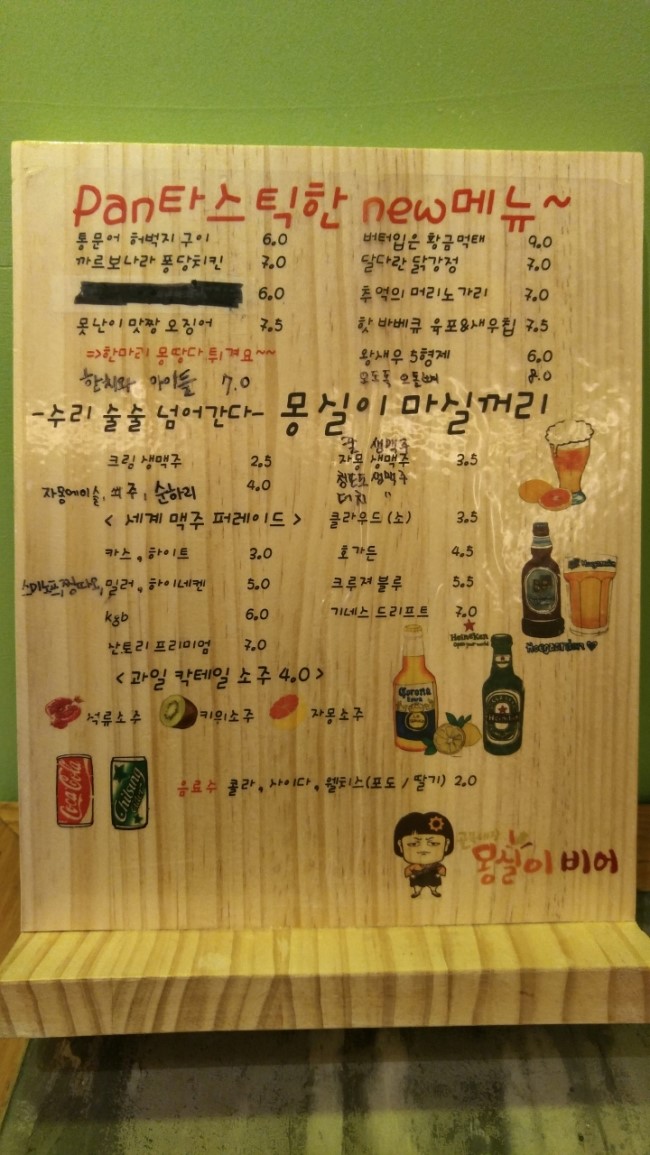 Pan타스틱한 new메뉴~
통문어 허벅지 구이 6.0
버터입은 황금먹태 9.0
까르보나라 퐁당치킨 7.0
달다란 닭강정 7.0
6.0
추억의 머리노가리 7.0
못난이 맛짱 오징어 7.5
핫 바베큐 육포&새우칩 7.5
⇒한마리 몽땅다 튀겨요~~
왕새우 5형제 6.0
한치와 아이들 7.0
오도독 오돌뼈 8.0
-수리 술술 넘어간다- 몽실이 마실꺼리
생맥주
크림 생맥주 2.5
자몽 생맥주 3.5
생맥주
자몽에이슬, 순하리 4.0
더치 "
< 세계 맥주 퍼레이드 >
클라우드 (소) 3.5
카스, 하이트 3.0
호가든 4.5
밀러, 하이네켄 5.0
크루져 블루 5.5
kgb 6.0
기네스 드리프트 7.0
산토리 프리미엄 7.0
Heineken
Hoegaarden
< 과일 칵테일 소주 4.0 >
Corona
석류소주 키위소주 자몽소주
Coca Cola
Chilsung
음료수 콜라, 사이다, 웰치스(포도 / 딸기) 2.0
몽실이 비어